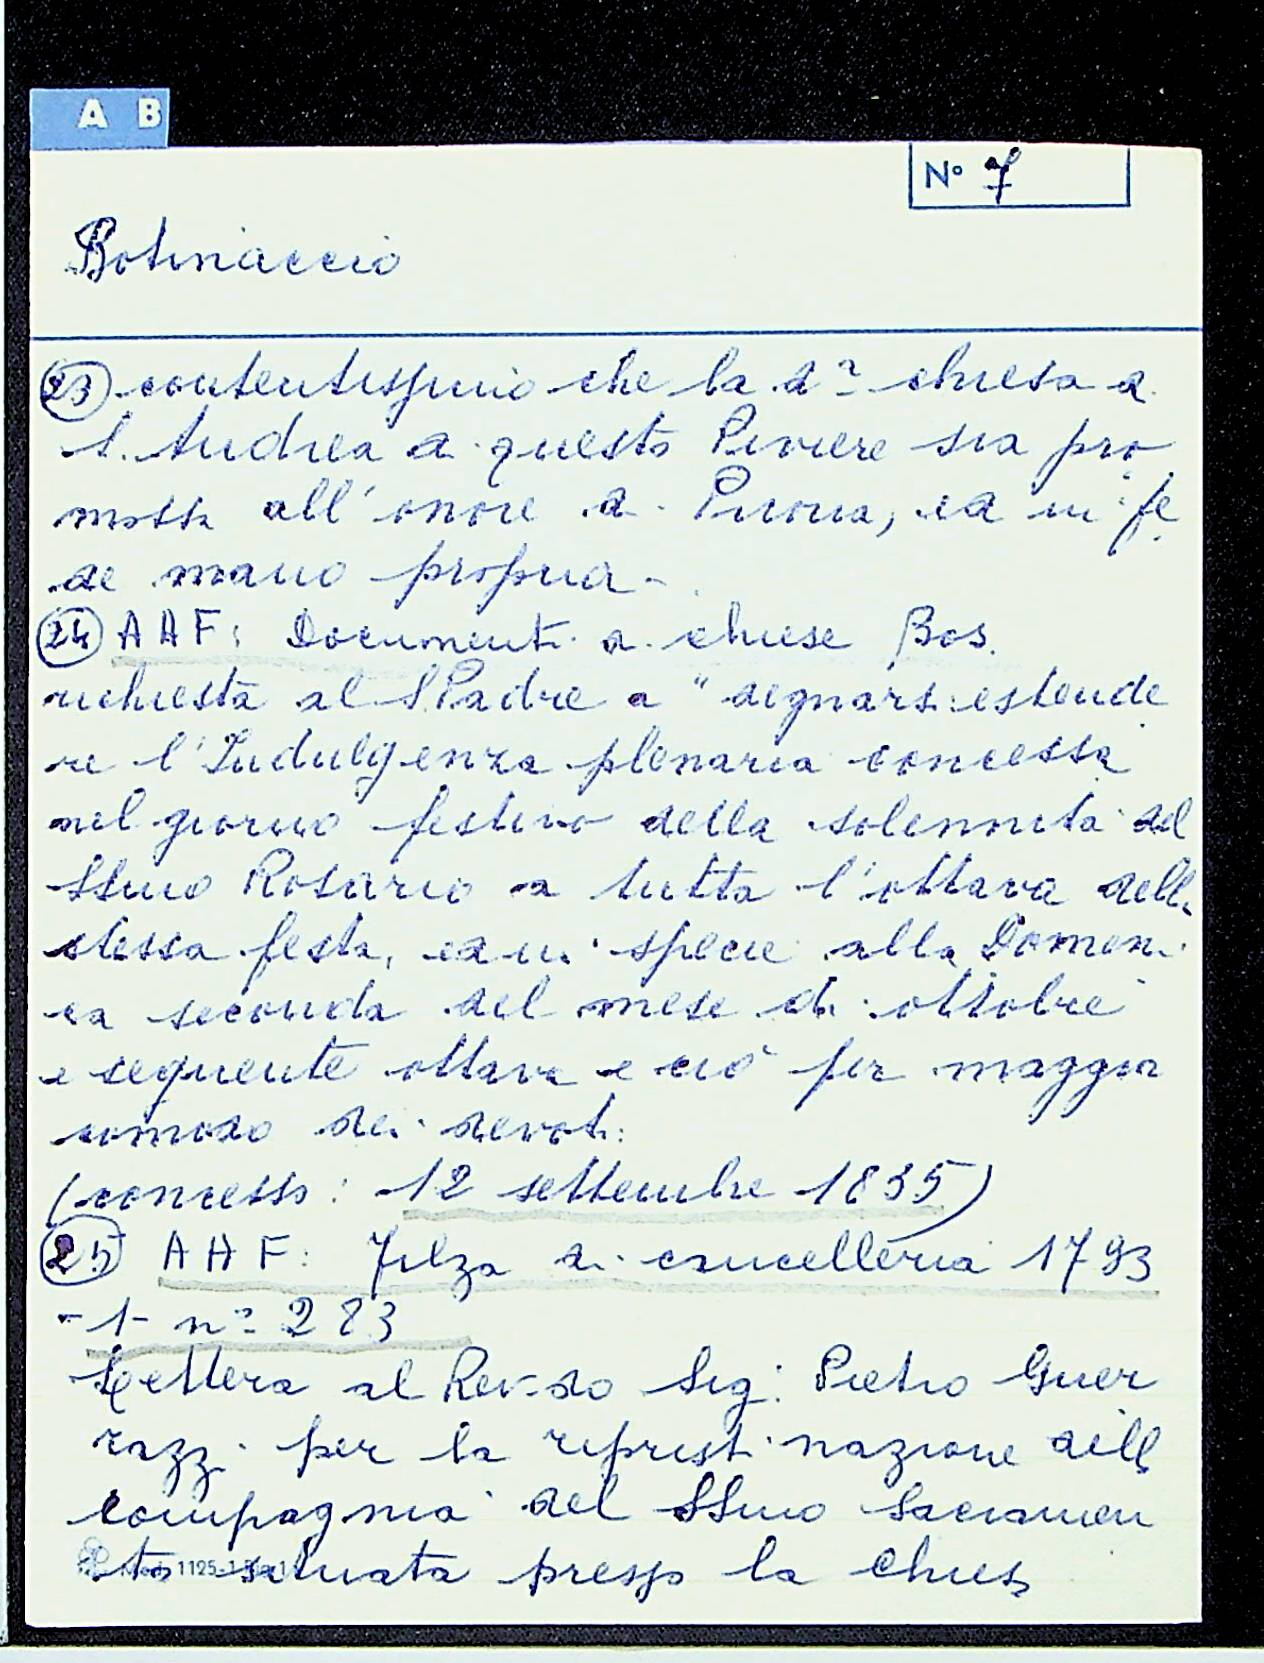 A B
N° 7
Botinaccio
(23) contentissimo che la d.ª chiesa di
S. Andrea di questo Piviere sia pro
mossa all'onore di Prioria, ed in fe
de mano propria -
(24) AAF: Documenti di chiese Bos.
richiesta al S. Padre a "degnarsi estende
re l'Indulgenza plenaria concessa
nel giorno festivo della solennità del
SSmo Rosario a tutta l'ottava della
stessa festa, ed in specie alla Domeni
ca seconda del mese di ottobre
e seguente ottava e ciò per maggior
comodo dei devoti:
(concesso: 12 settembre 1835)
(25) AAF: Filza di cancelleria 1793
-1- n° 283
Lettera al Rev.do Sig: Pietro Guer
razzi per la ripristinazione della
compagnia del SSmo Sacramen
to situata presso la Chiesa